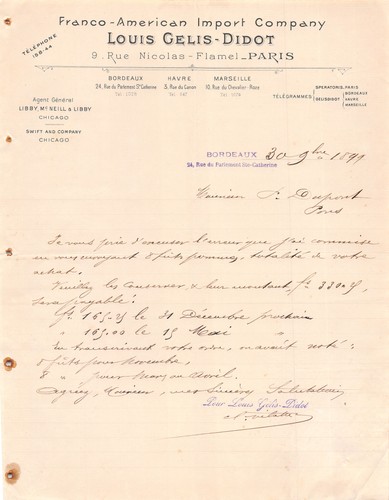 Franco-American Import Company
LOUIS GELIS-DIDOT
9, Rue Nicolas-Flamel_PARIS
TÉLÉPHONE
158-44
BORDEAUX
24, Rue du Parlement Ste Catherine
HAVRE
3, Rue du Canon
MARSEILLE
10, Rue du Chevalier-Roze
TÉLÉGRAMMES
OPERATORIS, PARIS
GELISDIDOT
BORDEAUX
HAVRE
MARSEILLE
Agent Général
LIBBY, Mc NEILL & LIBBY
CHICAGO
SWIFT AND COMPANY
CHICAGO
BORDEAUX 30 9bre 1899
24, Rue du Parlement Ste-Catherine
Monsieur Dupont
Je vous prie d'excuser l'erreur que j'ai commise
en vous envoyant 8 fûts pommes, totalité de votre
achat.
Veuillez les conserver & leur montant, 330.25
sera payable:
165.25 le 31 Décembre prochain
" 165.00 le 15 Mai "
En transcrivant votre ordre, on avait noté:
8 fûts pour Novembre,
8 " pour Mars ou Avril.
Agréez, Monsieur, mes sincères Salutations
Pour Louis Gelis-Didot